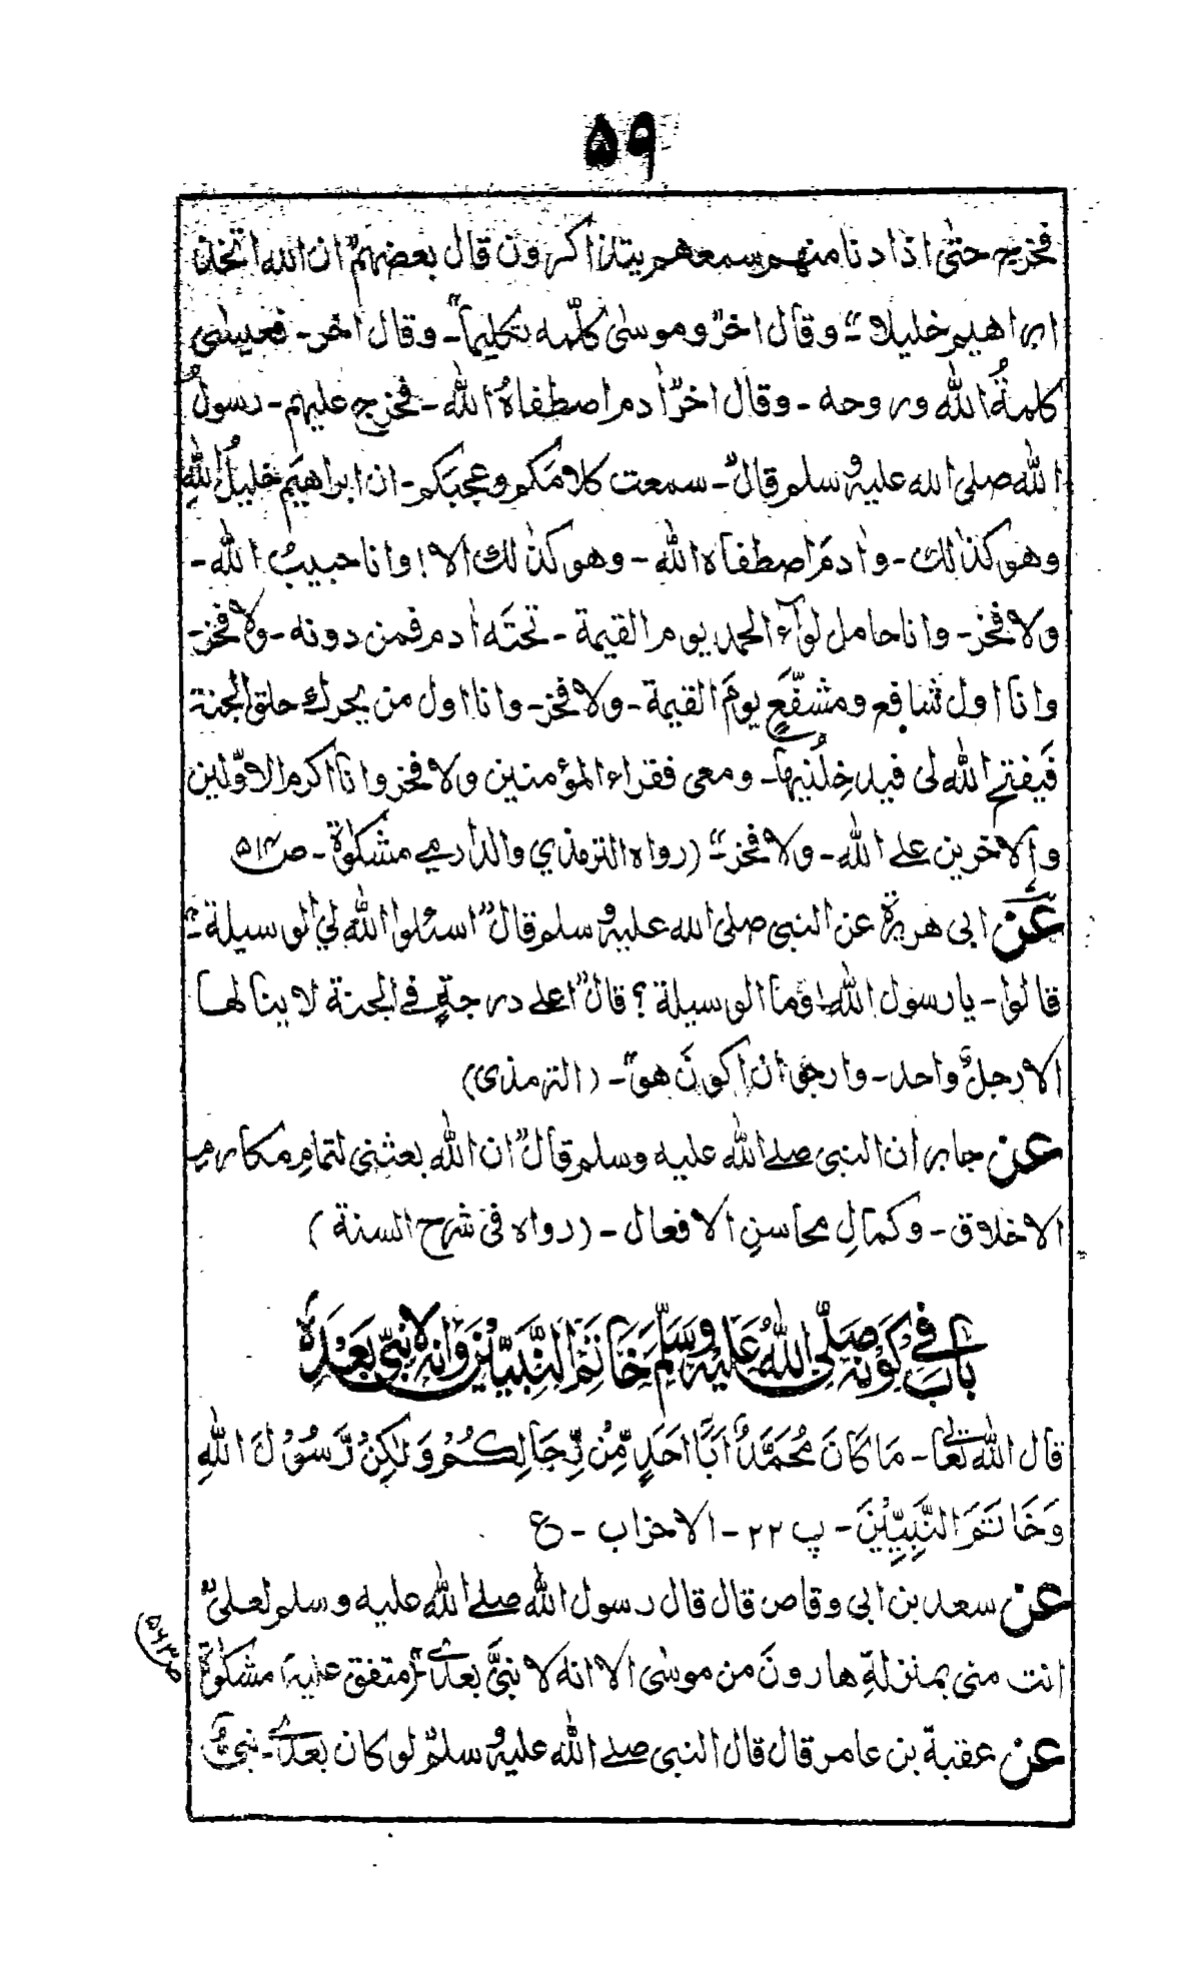 ۵۹
فخرج حتٰى اذا دنا منهم سمعهم يتذاكرون قال بعضهم "ان الله اتخذ
ابراهيم خليلا" وقال اخر "وموسٰى كلّمه تكليماً" - وقال اخر - فعيسٰى
كلمةُ الله وروحه - وقال اخر "اٰدم اصطفاهُ الله - فخرج عليهم - رسولُ
الله صلى الله عليه وسلم قال" - سمعت كلامَكم وعجبَكم - ان ابراهيمَ خليلُ اللهِ
وهو كذالك - واٰدمَ اصطفاه الله - وهو كذٰلك الا! وانا حبيبُ الله -
ولا فخز - وانا حامل لوآء الحمد يوم القيمة - تحتَه اٰدم فمن دونه - ولا فخز -
وانا اول شافع ومشفّعٍ يومَ القيمة - ولا فخز - وانا اول من يحرك حلق الجنة
فَيفتح الله لى فيدخِلُنيها - ومعى فقراء المؤمنين ولا فخز وانا اكرم الاوّلين
والاخرين على الله - ولا فخز -" (رواه الترمذي والدارمى مشكوٰة - ص ۵۱۳
عن ابى هريرة عن النبى صلى الله عليه وسلم قال "اسئلوا الله لي الوسيلة -"
قالوا - يا رسول الله! وما الوسيلة ؟ قال "اعلى درجةٍ فى الجنة لا ينالها
الا رجلٌ واحد - وارجو ان اكونَ هو" - (الترمذى)
عن جابر ان النبى صلى الله عليه وسلم قال "ان الله بعثنى لتمامِ مكارم
الاخلاق - وكمالِ محاسنِ الافعال - (رواه فى شرح السنة)
بابٌ فى كَوْنِه صَلَّى اللهُ عَلَيْهِ وَسَلَّمَ خَاتَمَ النَّبِيِّيْنَ وَانه لا نَبِىَّ بَعْدَهٗ
قال الله تعالى - مَا كَانَ مُحَمَّدٌ اَبَا اَحَدٍ مِّنْ رِّجَالِكُمْ وَلٰكِنْ رَّسُوْلَ اللهِ
وَخَاتَمَ النَّبِيِّيْنَ - پ ۲۲ - الاحزاب - ع
عن سعد بن ابى وقاص قال قال رسول الله صلى الله عليه وسلم لعلىٍّ"
انت منى بمنزلةِ هارونَ من موسٰى الا انه لا نبىَّ بعدى" (متفق عليه) مشكوٰة
ص ۵۶۳
عن عقبة بن عامر قال قال النبى صلى الله عليه وسلم "لو كان بعدى - نبىٌّ